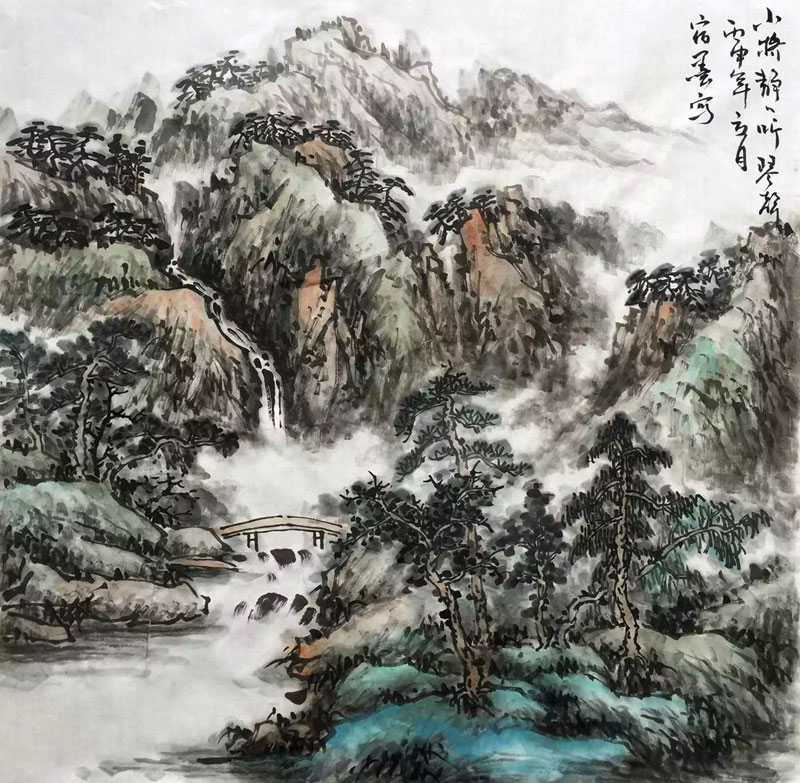 小桥静静听琴声
丙申年立月
宿墨写